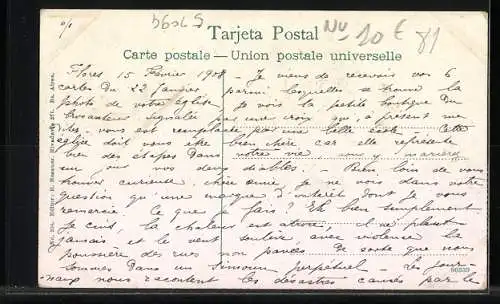 0/1
59096
Nu 10 € 81
Tarjeta Postal
Carte postale — Union postale universelle
No. 204. Editor: R. Rosauer, Rivadavia 571. Bs. Aires.
Flores 15 Février 1908 Je viens de recevoir vos 6
cartes du 22 Janvier, parmi lesquelles se trouve la
photo de votre église, je vois la petite boutique du
brocanteur signalée par une croix qui, à présent me
dites-vous est remplacée par une belle école. Cette
église doit vous être bien chère car elle représente
bien des étapes dans votre vie vous y marierez
un jour vos deux diables. — Bien loin de vous
trouver curieuse, chère amie, je ne vois dans votre
question qu'une marque d'intérêt dont je vous
remercie. Ce que je fais? Eh bien simplement
je cuis, la chaleur est atroce, il ne pleut
jamais et le vent soulève avec violence la
poussière des rues non pavées. De sorte que nous
sommes dans un simoun perpétuel. — Les jour-
naux nous racontent les désastres causés par le